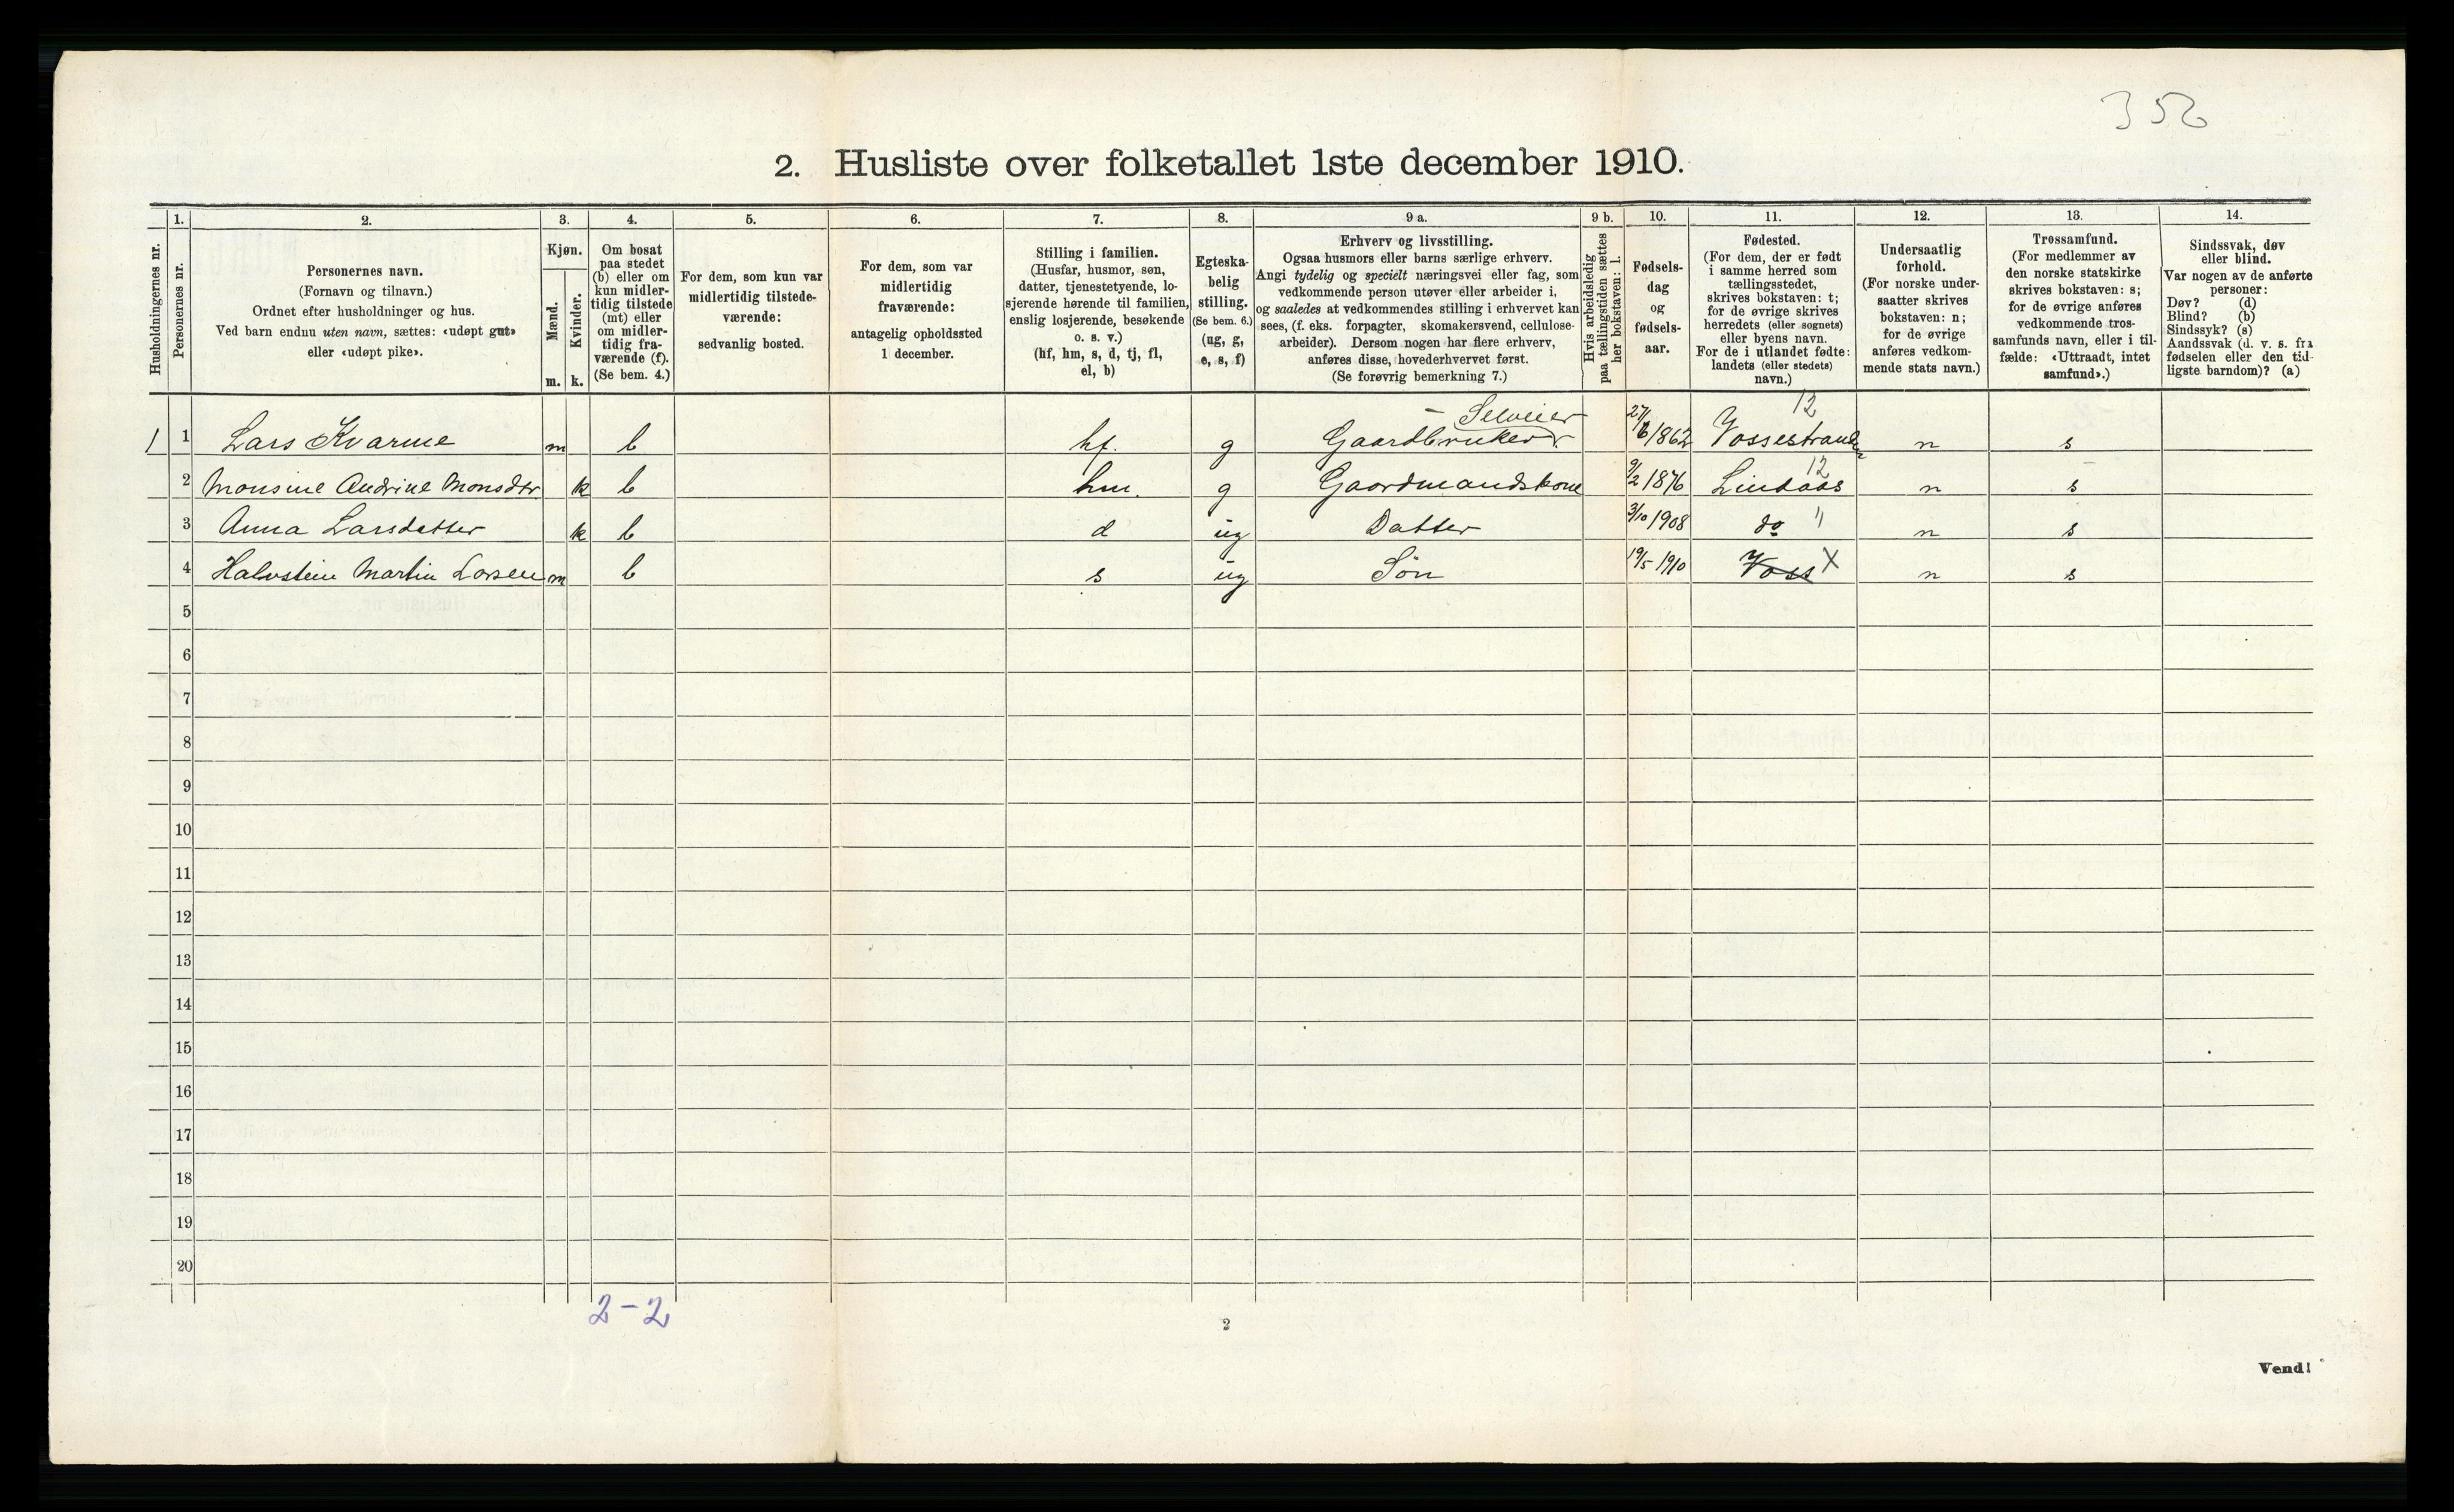 352
2. Husliste over folketallet 1ste december 1910.
Husholdningernes nr.
1. Personernes nr.
2. Personernes navn. (Fornavn og tilnavn.) Ordnet efter husholdninger og hus. Ved barn endnu uten navn, sættes: «udøpt gut» eller «udøpt pike».
3. Kjøn. Mænd. m. Kvinder. k.
4. Om bosat paa stedet (b) eller om kun midlertidig tilstede (mt) eller om midlertidig fraværende (f). (Se bem. 4.)
5. For dem, som kun var midlertidig tilstedeværende: sedvanlig bosted.
6. For dem, som var midlertidig fraværende: antagelig opholdssted 1 december.
7. Stilling i familien. (Husfar, husmor, søn, datter, tjenestetyende, losjerende hørende til familien, enslig losjerende, besøkende o. s. v.) (hf, hm, s, d, tj, fl, el, b)
8. Egteskabelig stilling. (Se bem. 6.) (ug, g, e, s, f)
9 a. Erhverv og livsstilling. Ogsaa husmors eller barns særlige erhverv. Angi tydelig og specielt næringsvei eller fag, som vedkommende person utøver eller arbeider i, og saaledes at vedkommendes stilling i erhvervet kan sees, (f. eks. forpagter, skomakersvend, cellulosearbeider). Dersom nogen har flere erhverv, anføres disse, hovederhvervet først. (Se forøvrig bemerkning 7.)
9 b. Hvis arbeidsledig paa tællingstiden sættes her bokstaven: l.
10. Fødselsdag og fødselsaar.
11. Fødested. (For dem, der er født i samme herred som tællingsstedet, skrives bokstaven: t; for de øvrige skrives herredets (eller sognets) eller byens navn. For de i utlandet fødte: landets (eller stedets) navn.)
12. Undersaatlig forhold. (For norske undersaatter skrives bokstaven: n; for de øvrige anføres vedkommende stats navn.)
13. Trossamfund. (For medlemmer av den norske statskirke skrives bokstaven: s; for de øvrige anføres vedkommende trossamfunds navn, eller i tilfælde: «Uttraadt, intet samfund».)
14. Sindssvak, døv eller blind. Var nogen av de anførte personer: Døv? (d) Blind? (b) Sindssyk? (s) Aandssvak (d. v. s. fra fødselen eller den tidligste barndom)? (a)
- Selveier 12
1 1 Lars Kvarme m b hf. g Gaardbruker 27/6 1862 Vossestranden n s
12
2 Monsine Andrine Monsdtr k b hm. g Gaardmandskone 9/2 1876 Lindaas n s
3 Anna Larsdatter k b d ug Datter 3/10 1908 do " n s
4 Halvstein Martin Larsen m b s ug Søn 19/5 1910 Voss X n s
5
6
7
8
9
10
11
12
13
14
15
16
17
18
19
20
2-2
2
Vend!